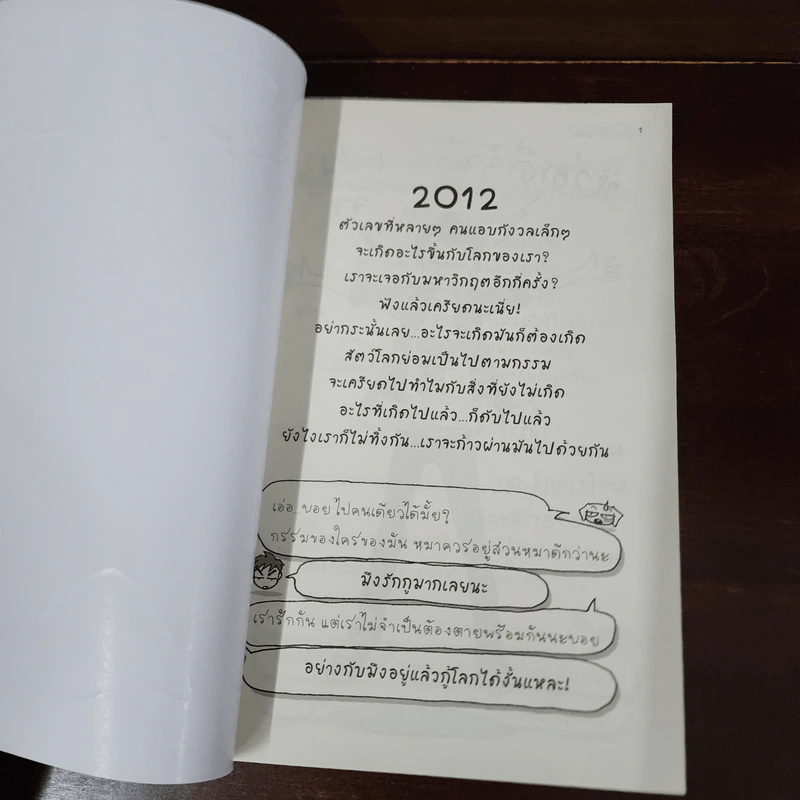 2012
ตัวเลขที่หลายๆ คนแอบกังวลเล็กๆ
จะเกิดอะไรขึ้นกับโลกของเรา?
เราจะเจอกับมหาวิกฤตอีกกี่ครั้ง?
ฟังแล้วเครียดนะเนี่ย!
อย่ากระนั้นเลย...อะไรจะเกิดมันก็ต้องเกิด
สัตว์โลกย่อมเป็นไปตามกรรม
จะเครียดไปทำไมกับสิ่งที่ยังไม่เกิด
อะไรที่เกิดไปแล้ว...ก็ดับไปแล้ว
ยังไงเราก็ไม่ทิ้งกัน...เราจะก้าวผ่านมันไปด้วยกัน
เอ่อ...บอย ไปคนเดียวได้มั้ย?
กรรมของใครของมัน หมาควรอยู่สวนหมาดีกว่านะ
มึงรักกูมากเลยนะ
เรารักกัน แต่เราไม่จำเป็นต้องตายพร้อมกันนะบอย
อย่างกับมึงอยู่แล้วกู้โลกได้งั้นแหละ!